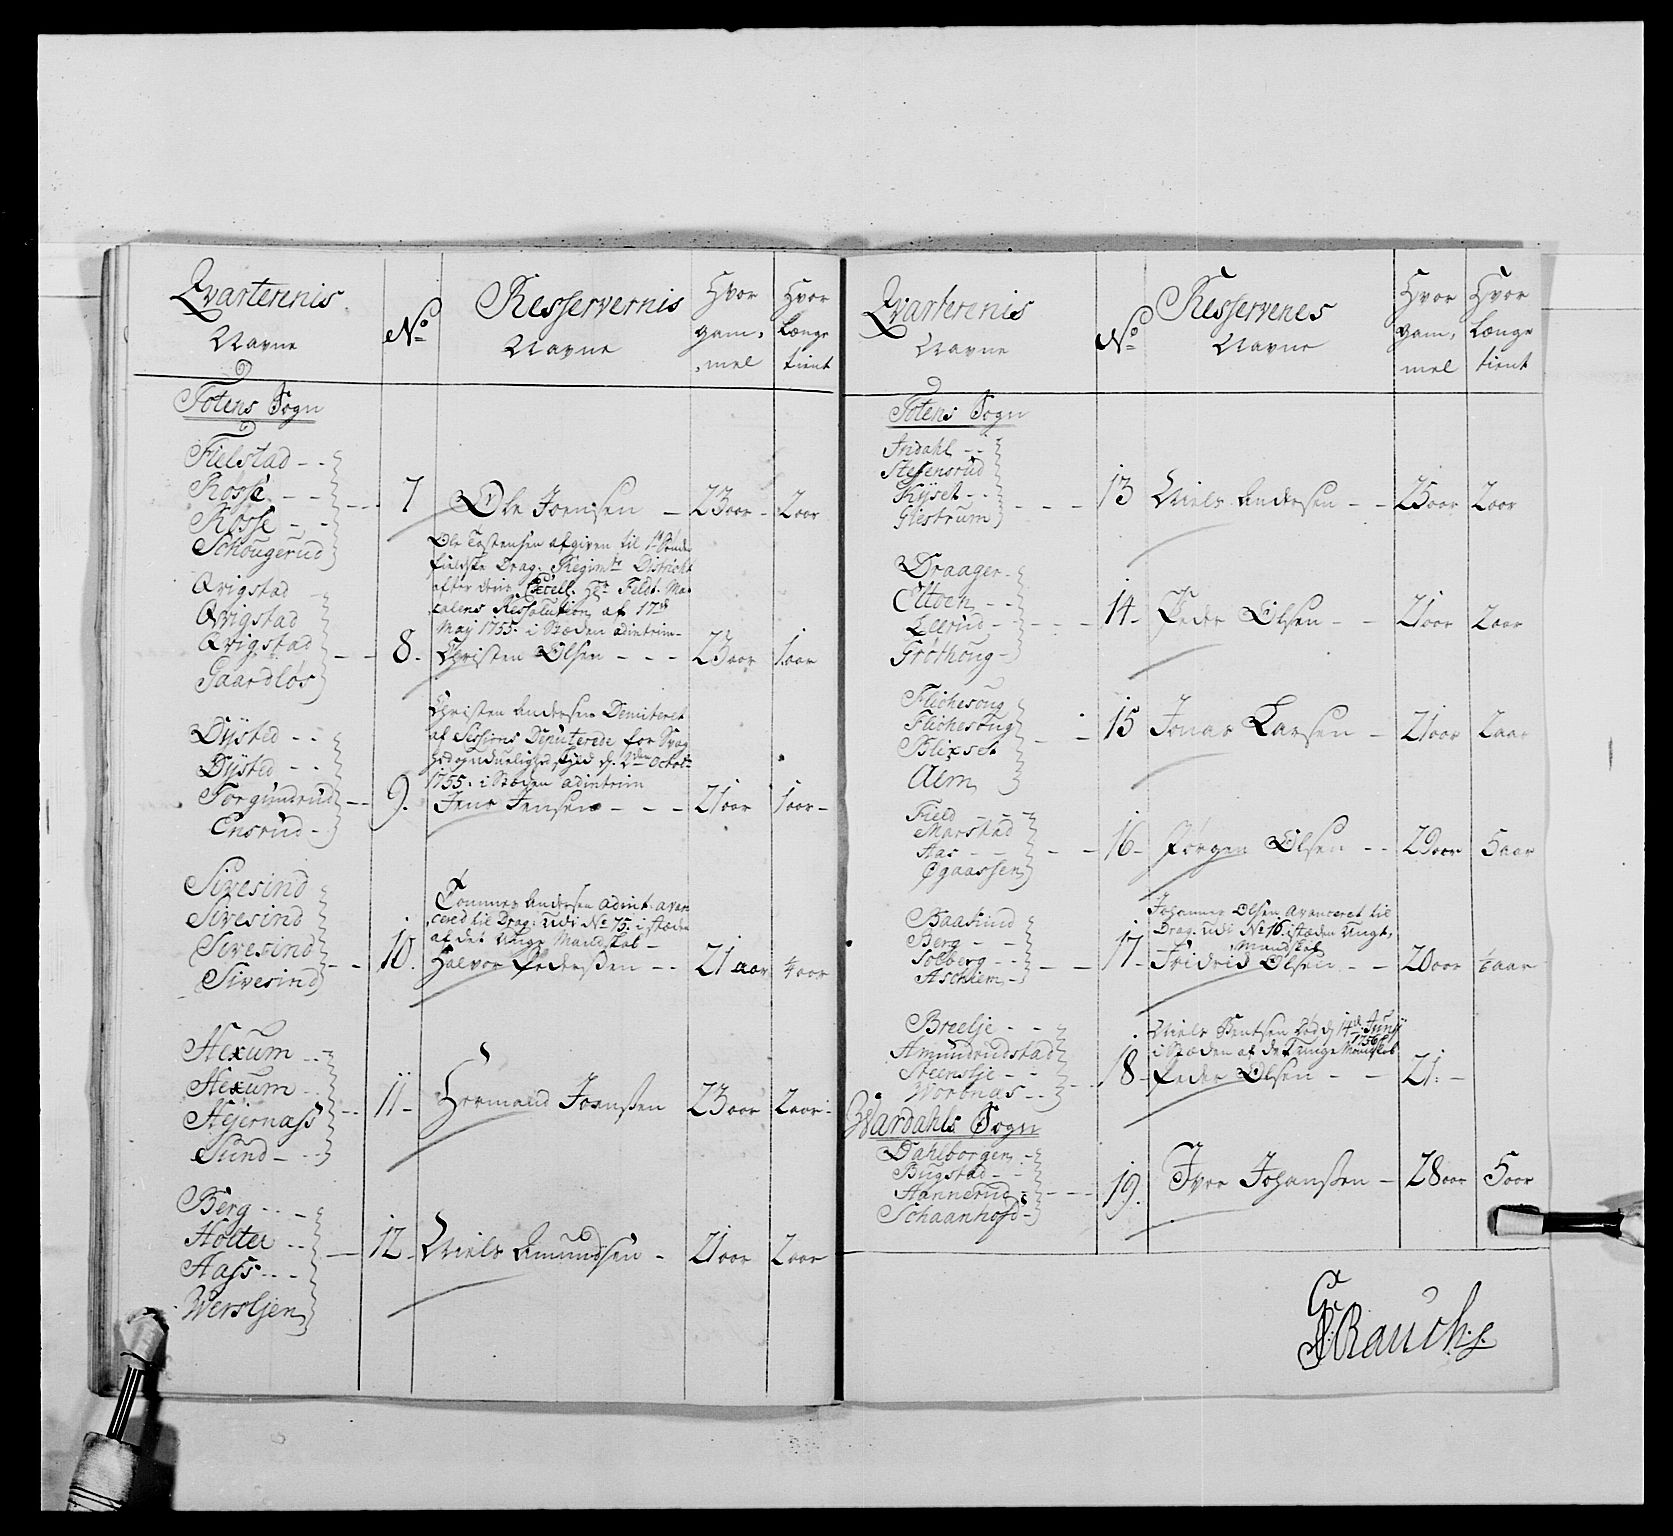 Qvarterenis Navne
No
Resservernis Navne
Hvor gam,mel
Hvor længe tient
Totens Sogn
Fielstad
Rosse
Rosse
Schougerud
7 Ole Joensen 23 aar 2 aar
Qvigstad
Qvigstad
Qvigstad
Gaardløs
Ole Tostensen afgiven til 1te Sønden
fieldske Drag: Regimts District
efter deris Excell. Hr Feldt Ma
calens Ressolution af 17de
Maj 1755. i Stæden adintrim
8. Christen Olsen 23 aar 1 aar
Dysted
Dysted
Torgundrud
Ensrud
Christen Andersen Demiteret
af Sessions Deputerede for Svag
hed og uduelighed skyld d. 2den Octobr
1755. i Stæden adintrim
9. Jens Jensen 21 aar 1 aar
Sivesind
Sivesind
Sivesind
Sivesind
Tommes Andersen adint avan
cered til Drag: udi No 75. i stæden
af det unge Mandskab
10. Halvor Pedersen 21 aar ¼ aar
Hexum
Hexum
Hgiernass
Sund
11 Hermand Joensen 23 aar 2 aar
Berg
Holter
Hass
Wersljen
12 Niels Amundsen 21 aar 2 aar
Qvarterenis Navne
No
Resservenes Navne
Hvor gam,mel
Hvor længe tient
Totens Sogn
Indahl
Steffensrud
Kyset
Glestrum
13 Niels Andersen 25 aar 2 aar
Draager
Eltoen
Leerud
Grøthoug
14 Peder Olsen 21 aar 2 aar
Flichesoug
Flichesoug
Blixset
Alm
15 Jonas Larsen 21 aar 2 aar
Field
Marstad
Aas
Øgaassen
16 Jørgen Olsen 29 aar 5 aar
Baasind
Berg
Solberg
Aschiem
Johannes Olsen avanceret til
Drag. udi No 16. i stæden ungt,
Mandskab
17 Fridrid Olsen 20 aar aar
Breelje
Amundrudstad
Steenslje
Worbnas
Niels Bentsen død d 14de Junij
1756
i Stæden af det unge Mandskab
18 Peder Olsen 21
Wardahls Sogn
Dahlborgen
Bugstad
Hannerud
Schaanhofd
19. Iver Johansen 28 aar 5 aar
G Rauch